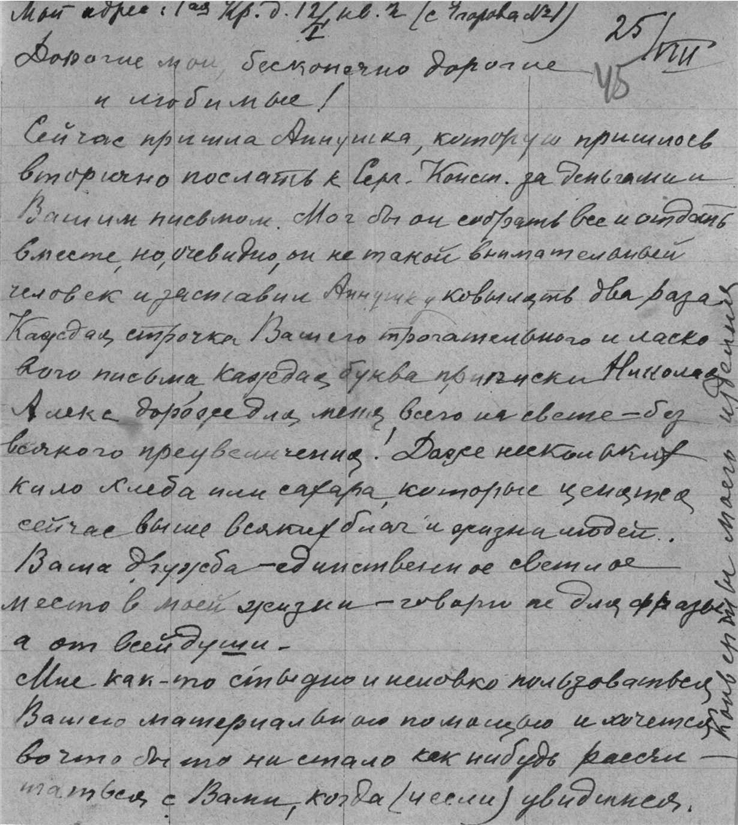 Мой адрес: 1ая Кр. д. 12/I кв. 2 (с Угорова №1)
25/VIII
45
Дорогие мои, бесконечно дорогие
и любимые!
Сейчас пришла Аннушка, которую пришлось
вторично послать к Серг. Конст. за деньгами и
Вашим письмом. Мог бы он собрать все и отдать
вместе, но, очевидно, он не такой внимательный
человек и заставил Аннушку ковылять два раза
Каждая строчка Вашего трогательного и ласко
вого письма, каждая буква приписки Николая
Алекс дороже для меня всего на свете – без
всякого преувеличения! Даже нескольких
кило хлеба или сахара, которые ценятся
сейчас выше всяких благ и жизни людей.
Ваша дружба – единственное светлое
место в моей жизни – говорю не для фразы
а от всей души –
Мне как-то стыдно и неловко пользоваться
Вашего материального помощью и хочется
во что бы то ни стало как нибудь рассчи –
таться с Вами, когда (и если) увидимся.
Конверты моего изделия